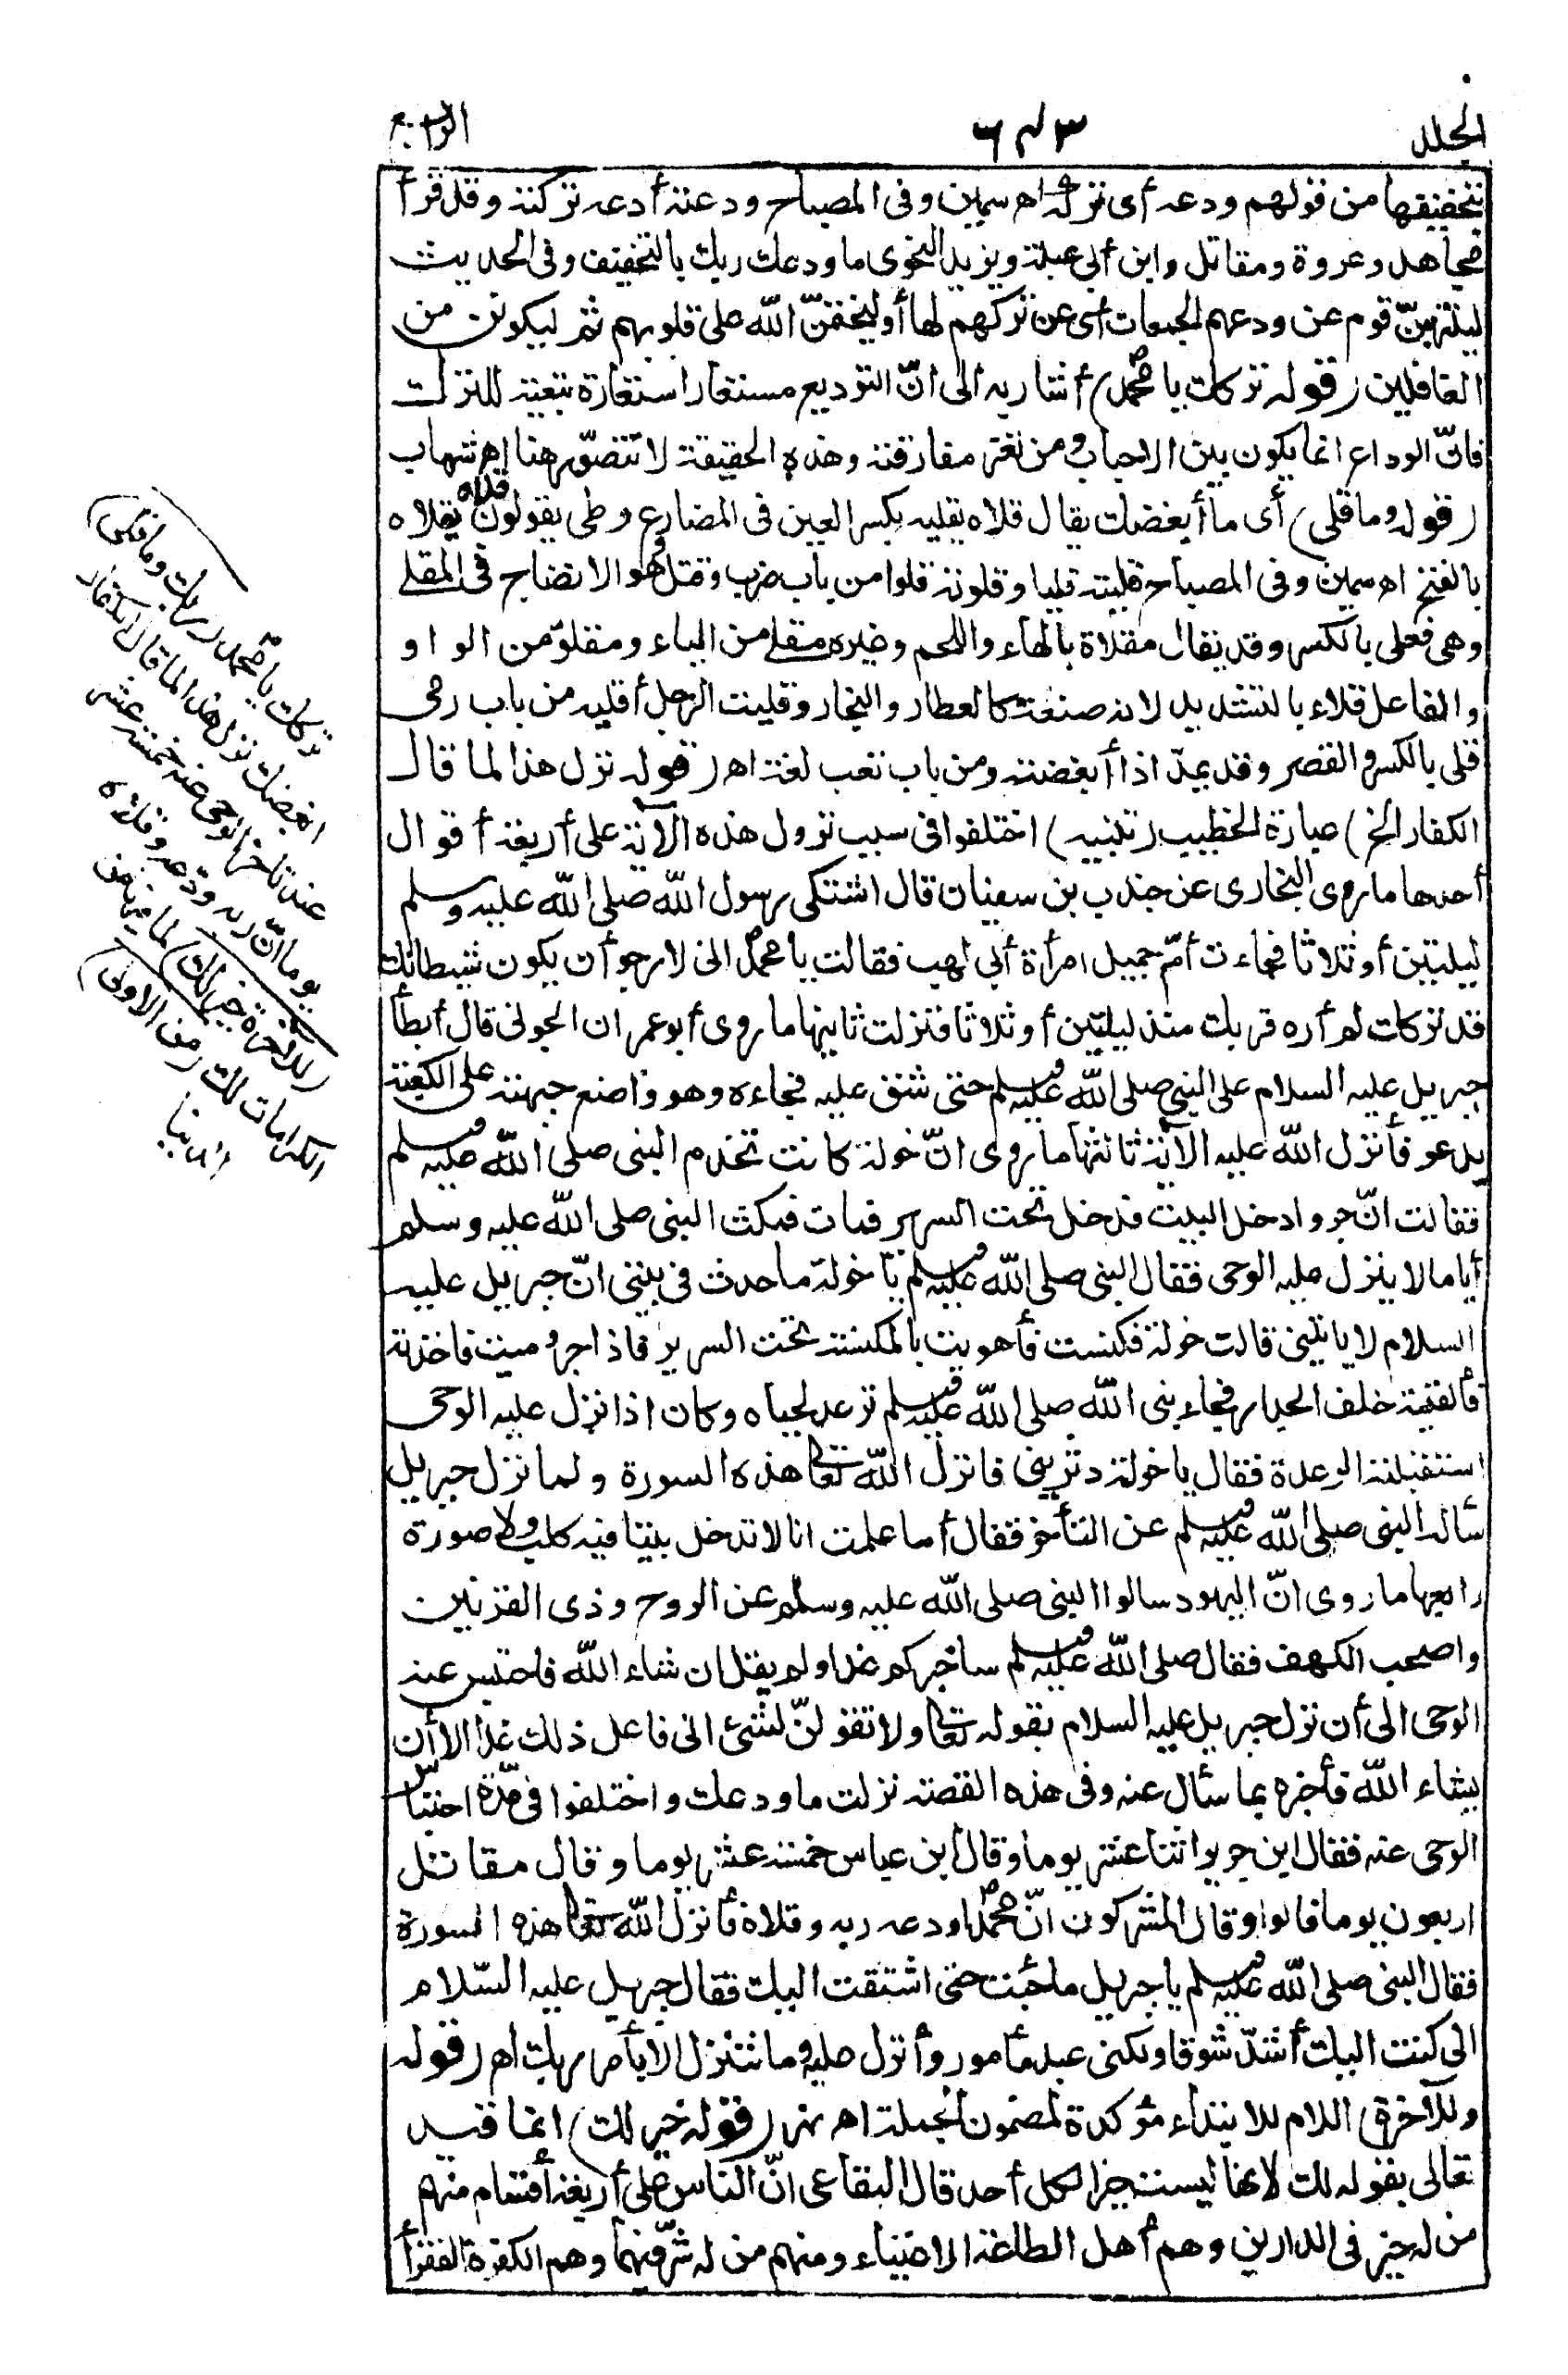 الجلد
٦٤٣
الرابع
بتخفيفها من قولهم ودعه أى تركه اه سمين وفى المصباح ودعته أدعه تركته وقد قرأ
مجاهد وعروة ومقاتل وابن أبى عبلة ويزيد النحوى ما ودعك ربك بالتخفيف وفى الحديث
لينتهينّ قوم عن ودعهم الجمعات أى عن تركهم لها أو ليختمنّ الله على قلوبهم ثم ليكونن من
الغافلين (قوله تركك يا محمد) أشار به الى انّ التوديع مستعار استعارة تبعية للترك
فانّ الوداع انما يكون بين الاحباب ومن تعز مفارقته وهذه الحقيقة لا تتصوّر هنا اه شهاب
(قوله وما قلى) أى ما أبغضك يقال قلاه يقليه بكسر العين فى المضارع وطى يقولون قلاه يقلاه
بالفتح اه سمين وفى المصباح قليته قليا وقلوته قلوا من باب ضرب وقتل وهو الانضاج فى المقلى
وهى فعلى بالكسر وقد يقال مقلاة بالهاء واللحم وغيره مقلى من الياء ومقلوّ من الواو
والفاعل قلاء بالتشديد لانه صنعة كالعطار والنجار وقليت الرجل أقليه من باب رمى
قلى بالكسر والقصر وقد يمدّ اذا أبغضته ومن باب تعب لغة اه (قوله نزل هذا لما قال
الكفار الخ) عبارة الخطيب (تنبيه) اختلفوا فى سبب نزول هذه الآية على أربعة أقوال
أحدها ما روى البخارى عن جندب بن سفيان قال اشتكى رسول الله صلى الله عليه وسلم
ليلتين أو ثلاثا فجاءت أمّ جميل امرأة أبى لهب فقالت يا محمد انى لارجو أن يكون شيطانك
قد تركك لم أره قربك منذ ليلتين أو ثلاثا فنزلت ثانيها ما روى أبو عمران الجونى قال أبطأ
جبريل عليه السلام على النبى صلى الله عليه وسلم حتى شق عليه فجاءه وهو واضع جبهته على الكعبة
يدعو فأنزل الله عليه الآية ثالثها ما روى انّ خولة كانت تخدم النبى صلى الله عليه وسلم
فقالت انّ جروا دخل البيت فدخل تحت السرير فمات فمكث النبى صلى الله عليه وسلم
أياما لا ينزل عليه الوحى فقال النبى صلى الله عليه وسلم يا خولة ما حدث فى بيتى انّ جبريل عليه
السلام لا يأتينى قالت خولة فكنست فأهويت بالمكنسة تحت السرير فاذا جرو ميت فاخذته
فألقيته خلف الجدار فجاء نبى الله صلى الله عليه وسلم ترعد لحياه وكان اذا نزل عليه الوحى
استقبلته الرعدة فقال يا خولة دثرينى فانزل الله تعالى هذه السورة ولما نزل جبريل
سأله النبى صلى الله عليه وسلم عن التأخر فقال أما علمت انا لا ندخل بيتا فيه كلب ولا صورة
رابعها ما روى انّ اليهود سألوا النبى صلى الله عليه وسلم عن الروح وذى القرنين
واصحب الكهف فقال صلى الله عليه وسلم سأخبركم غدا ولم يقل ان شاء الله فاحتبس عنه
الوحى الى أن نزل جبريل عليه السلام بقوله تعالى ولا تقولنّ لشئ انى فاعل ذلك غدا الا أن
يشاء الله فأخبره بما سأل عنه وفى هذه القصة نزلت ما ودعك واختلفوا فى مدّة احتباس
الوحى عنه فقال ابن جريج اثنا عشر يوما وقال ابن عباس خمسة عشر يوما وقال مقاتل
اربعون يوما قالوا وقال المشركون انّ محمدا ودعه ربه وقلاه فأنزل الله تعالى هذه السورة
فقال النبى صلى الله عليه وسلم يا جبريل ما جئت حتى اشتقت اليك فقال جبريل عليه السّلام
انى كنت اليك أشدّ شوقا ولكنى عبد مأمور وأنزل عليه وما نتنزل الا بأمر ربك اه (قوله
وللآخرة) اللام للابتداء مؤكدة لمضمون الجملة اه نهر (قوله خير لك) انما قيد
تعالى بقوله لك لانها ليست خيرا لكل أحد قال البقاعى انّ الناس على أربعة أقسام منهم
من له خير فى الدارين وهم أهل الطاعة الاغنياء ومنهم من له شرّ فيهما وهم الكفرة الفقرا
تركك يا محمد (ربك وما قلى)
ابغضك نزل هذا لما قال الكفار
عند تاخر الوحى عنه خمسة عشر
يوما انّ ربه ودّعه وقلاه
(وللآخرة خير لك) لما فيها من
الكرامات لك (من الاولى)
الدنيا